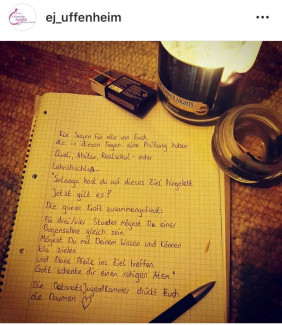 ej_uffenheim
Ein Segen für alle von Euch,
die in diesen Tagen eine Prüfung haben
Quali, Abitur, Realschul- oder
Lehrabschluss...
"Solange hast du auf dieses Ziel hingelebt
Jetzt gilt es!
Die ganze Kraft zusammengefasst:
Für drei/vier Stunden mögest Du einer
Bogensehne gleich sein.
Mögest Du mit Deinem Wissen und Können
klar zielen
und Deine Pfeile ins Ziel treffen.
Gott schenke dir einen ruhigen Atem."
Die DekanatsJugendKammer drückt Euch
die Daumen ♡
LIGHTS